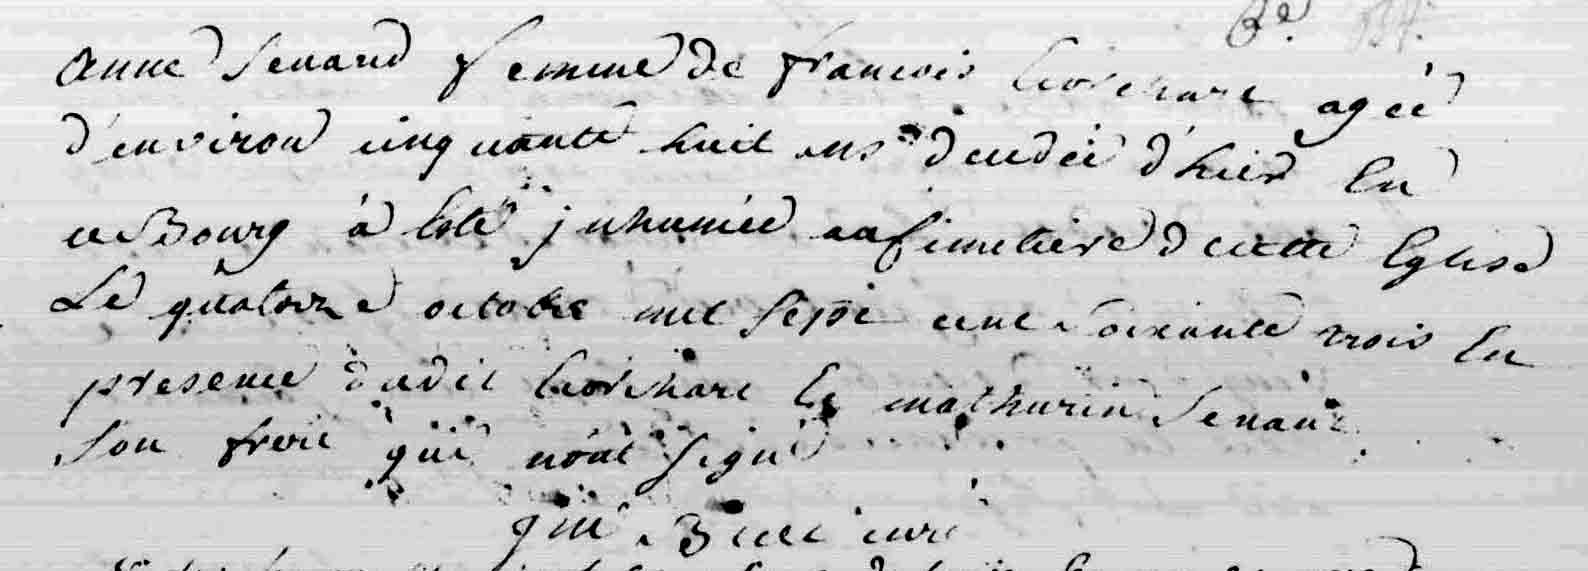 anne Senard femme de francois agée
d'environ cinquante huit ans decedée d'hier En
ce Bourg à Esté jnhumée au Cimetiere de cette Eglise
Le quatorze octobre mil sept cent soixante trois En
presence dudit Et mathurin Senard
son frere qui n'ont signé
curé